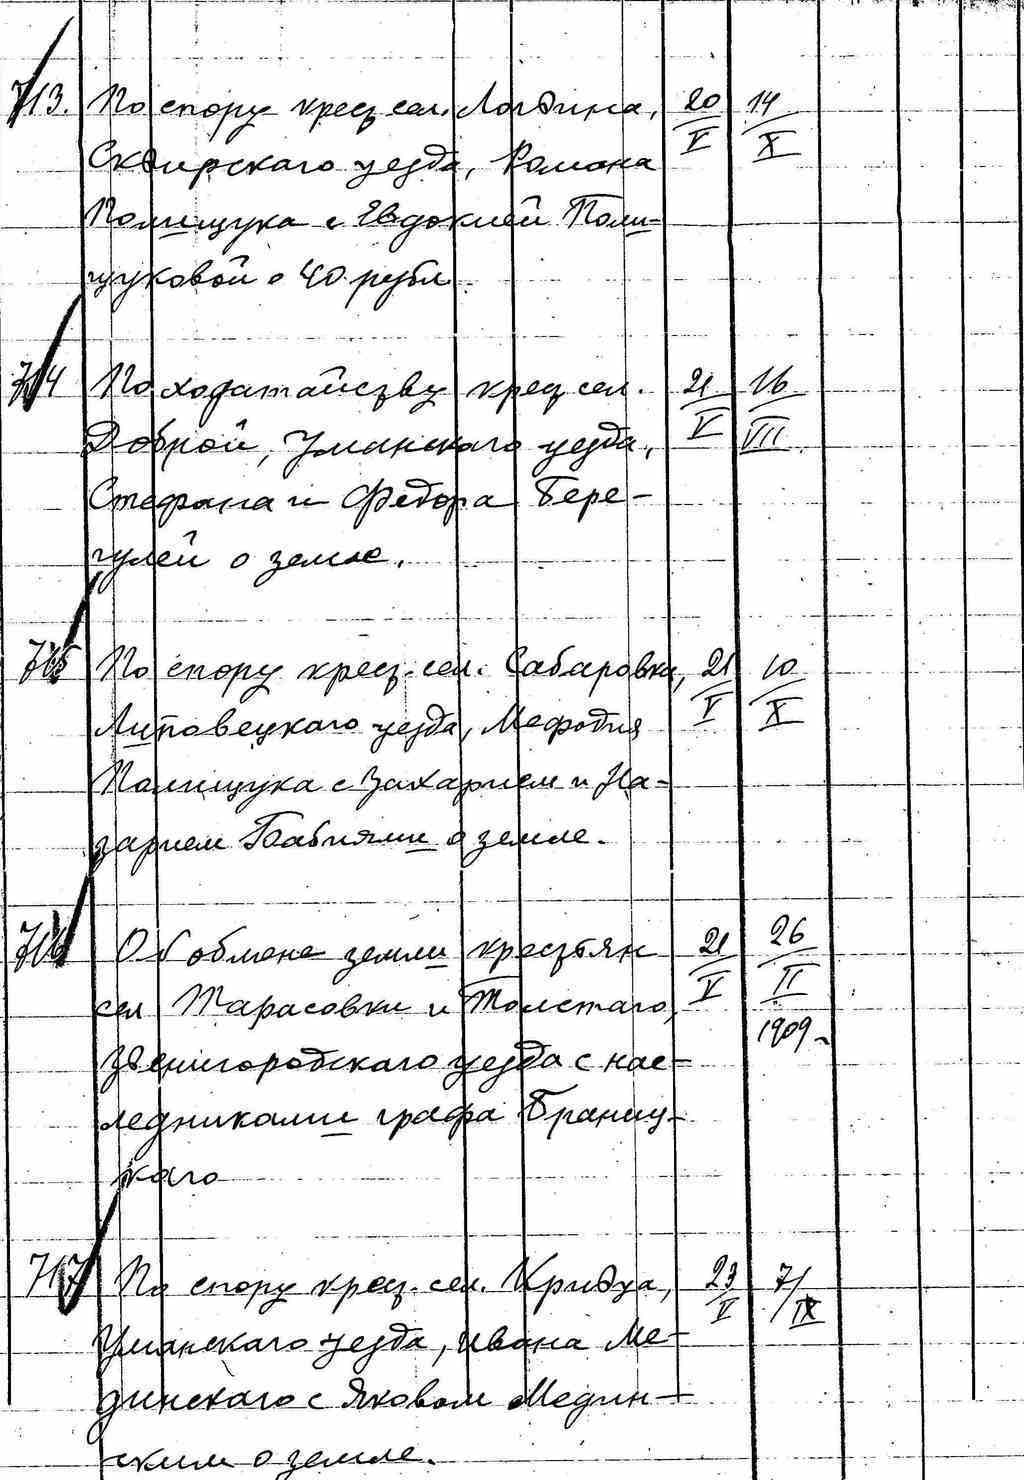 713. По спору крест. сел. Логвина, 20/V 14/X
Сквирскаго уезда, Романа
Полищука с Евдокией Поли-
щуковой о 40 рубл.
714 По ходатайству крест. сел. 21/V 16/VII
Доброй, Уманскаго уезда,
Стефана и Федора Бере-
гулей о земле.
715 По спору крест. сел. Сабаровки, 21/V 10/X
Липовецкаго уезда, Мефодия
Полищука с Захарием и На-
зарием Бабиями о земле.
716 Об обмене земли крестьян 21/V 26/II
сел Тарасовки и Толстаго, 1909
Звенигородскаго уезда с нас-
ледниками графа Браниц-
каго
717 По спору крест. сел. 23/V 7/IX
Уманскаго уезда, Ивана Ме-
динскаго с Яковом Медин-
ским о земле.